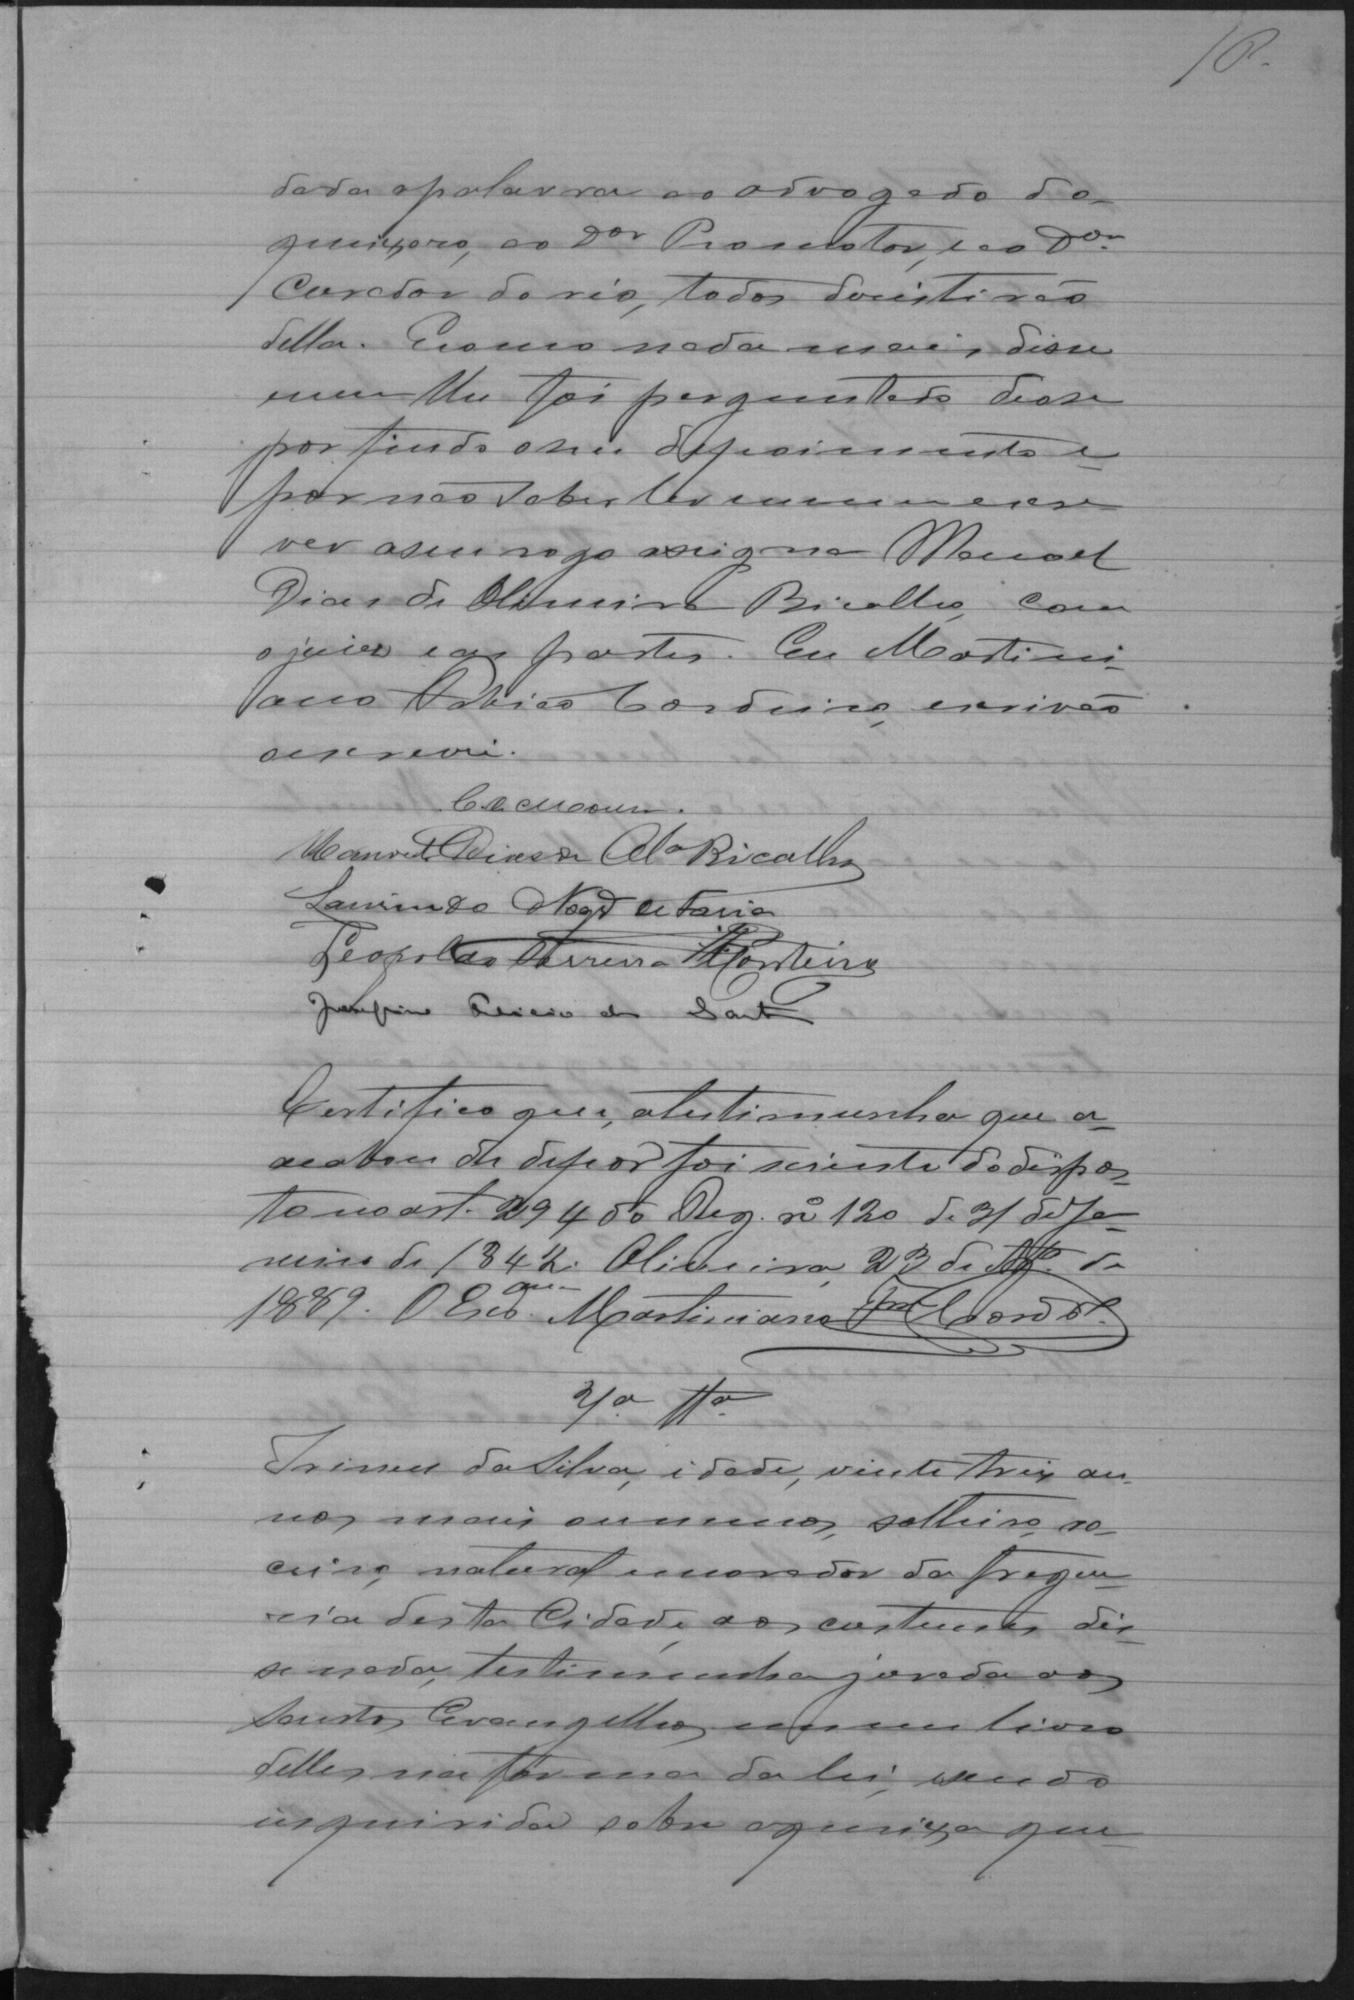 dada a palavra ao advogado do
queixoso, ao Dor Promotor, e ao Dor
Curador do réo, todos desistirão
della. E como nada mais disse
nem lhe foi perguntado deose
por findo o seu depoimento e
por não saber ler nem escre
ver a seu rogo assigna Manoel
Dias de Oliveira Bicalho, com
o juiz e as partes. Eu Martini
ano Cordeiro, escrivão
o escrevi.
Manoel Dias de Olª Bicalho
Laurindo Nogª de Faria
Leopoldo Ferreira Monteiro
Josefino Felicio dos Santos
Certifico que, a testimunha que a
acabou de depor foi sciente do dispos
to no art. 294 do Reg. nº 120 de 31 de Ja
neiro de 1842. Oliveira, 23 de Agto. de
1889. O Escam. Martiniano
3ª Tta.
Irineu da Silva, idade, vinte treis an
nos mais ou menos, solteiro, ro
ceiro, natural e morador da fregue
sia desta Cidade, aos costumes dis
se nada, testimunha jurada aos
Santos Evangelhos em um livro
delles na forma da lei, sendo
inquirida sobre a queixa que